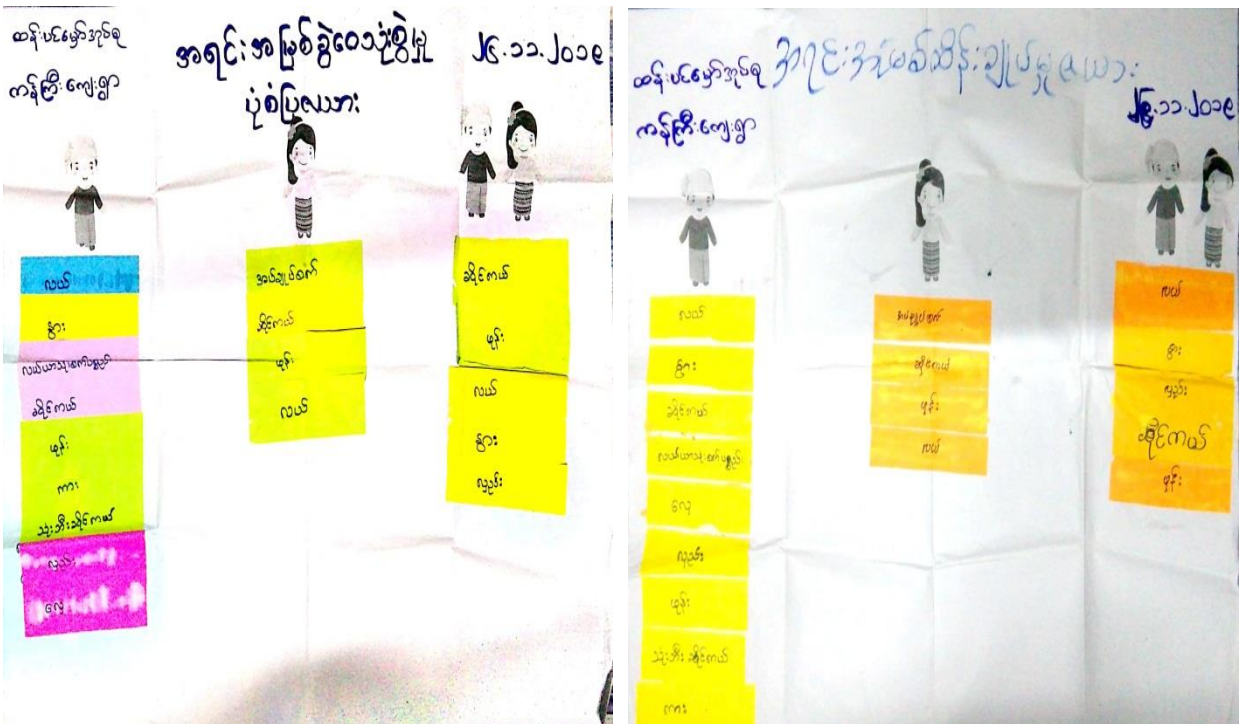 ထန်းပင်မှော်အုပ်စု
ကန်ကြီးကျေးရွာ
အရင်းအမြစ်ခွဲဝေသုံးစွဲမှု
ပုံစံပြဇယား
၂၆.၁၁.၂၀၁၉
လယ်
နွား
လယ်ယာသုံးစက်ပစ္စည်း
ဆိုင်ကယ်
ဖုန်း
ကား
သုံးဘီးဆိုင်ကယ်
လှည်း
လှေ
အပ်ချုပ်စက်
ဆိုင်ကယ်
ဖုန်း
လယ်
ဆိုင်ကယ်
ဖုန်း
လယ်
နွား
လှည်း
ထန်းပင်မှော်အုပ်စု
ကန်ကြီးကျေးရွာ
အရင်းအမြစ်ထိန်းချုပ်မှုဇယား
၂၆.၁၁.၂၀၁၉
လယ်
နွား
ဆိုင်ကယ်
လယ်ယာသုံးစက်ပစ္စည်း
လှေ
လှည်း
ဖုန်း
သုံးဘီးဆိုင်ကယ်
ကား
အပ်ချုပ်စက်
ဆိုင်ကယ်
ဖုန်း
လယ်
လယ်
နွား
လှည်း
ဆိုင်ကယ်
ဖုန်း